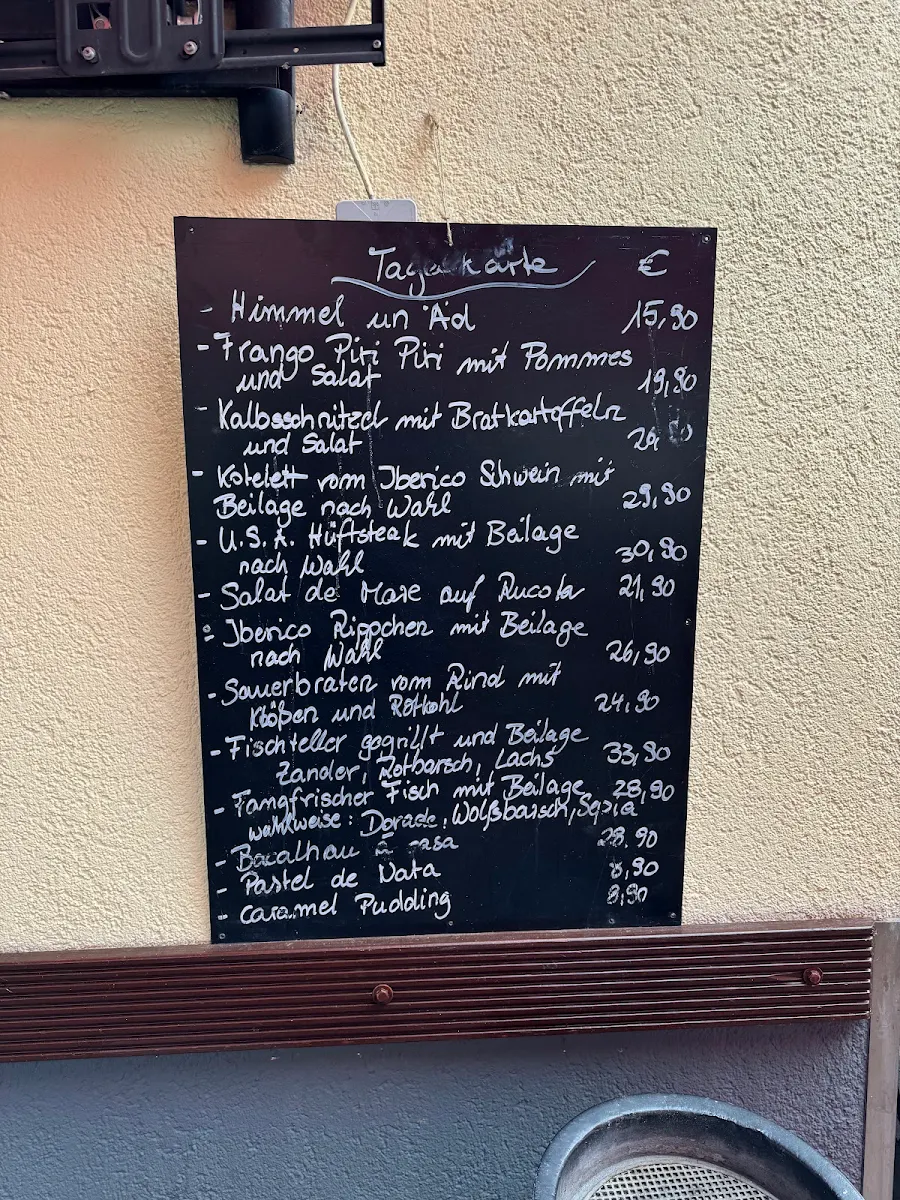 Tageskarte €
- Himmel un Äd 15,90
- Frango Piri Piri mit Pommes
und Salat 19,90
- Kalbsschnitzel mit Bratkartoffeln
und Salat
- Kotelett vom Iberico Schwein mit
Beilage nach Wahl 29,90
- U.S.A. Hüftsteak mit Beilage
nach Wahl 30,90
- Salat de Mare auf Rucola 21,90
- Iberico Rippchen mit Beilage
nach Wahl 26,90
- Sauerbraten vom Rind mit
Klößen und Rotkohl 24,90
- Fischteller gegrillt und Beilage
Zander, Rotbarsch, Lachs 33,90
- Fangfrischer Fisch mit Beilage 28,90
wahlweise: Dorade, Wolfsbarsch, Sepia
- Bacalhau à casa 28.90
- Pastel de Nata 8,90
- Caramel Pudding 8,90